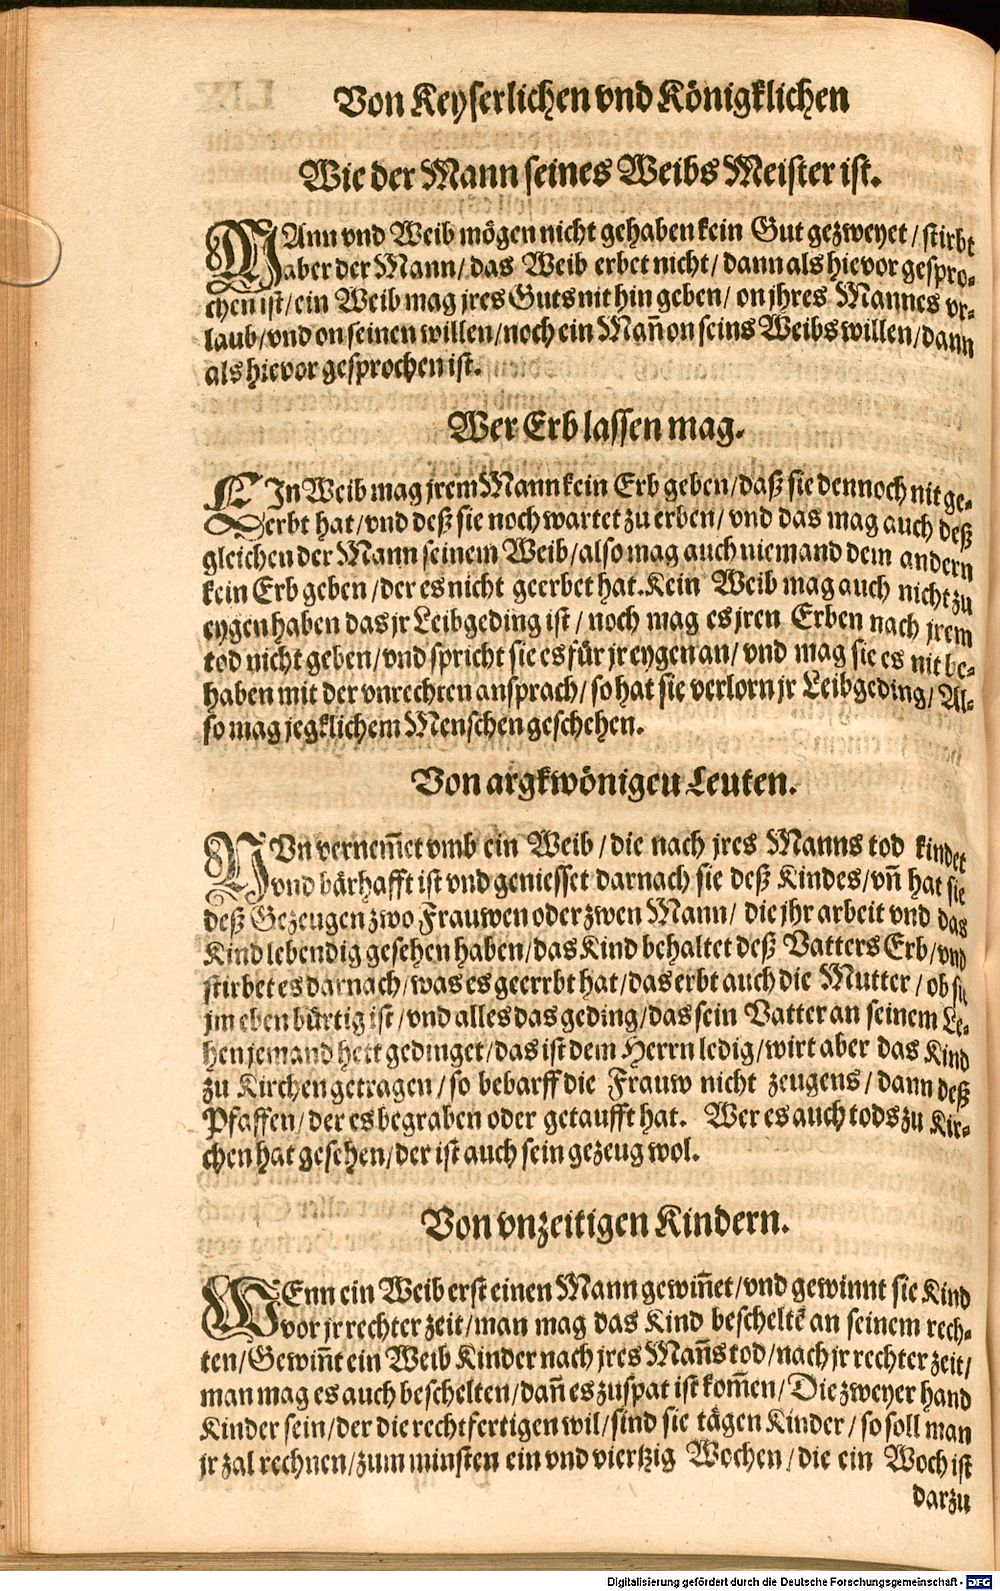 Von Keyserlichen vnd Königklichen
Wie der Mann seines Weibs Meister ist.
MAnn vnd Weib mögen nicht gehaben kein Gut gezweyet / stirbt
aber der Mann / das Weib erbet nicht / dann als hievor gespro-
chen ist / ein Weib mag jres Guts nit hin geben / on jhres Mannes vr-
laub / vnd on seinen willen / noch ein Mañ on seins Weibs willen / dann
als hievor gesprochen ist.
Wer Erb lassen mag.
EIn Weib mag jrem Mann kein Erb geben / daß sie dennoch nit ge-
erbt hat / vnd deß sie noch wartet zu erben / vnd das mag auch deß
gleichen der Mann seinem Weib / also mag auch niemand dem andern
kein Erb geben / der es nicht geerbet hat. Kein Weib mag auch nicht zu
eygen haben das jr Leibgeding ist / noch mag es jren Erben nach jrem
tod nicht geben / vnd spricht sie es für jr eygen an / vnd mag sie es nit be-
haben mit der vnrechten ansprach / so hat sie verlorn jr Leibgeding / Al-
so mag jegklichem Menschen geschehen.
Von argkwönigen Leuten.
NVn vernem̄et vmb ein Weib / die nach jres Manns tod kindet
vnd bärhafft ist vnd geniesset darnach sie deß Kindes / vñ hat sie
deß Gezeugen zwo Frauwen oder zwen Mann / die jhr arbeit vnd das
Kind lebendig gesehen haben / das Kind behaltet deß Vatters Erb / vnd
stirbet es darnach / was es geerrbt hat / das erbt auch die Mutter / ob sie
jm eben bürtig ist / vnd alles das geding / das sein Vatter an seinem Le-
hen jemand hett gedinget / das ist dem Herrn ledig / wirt aber das Kind
zu Kirchen getragen / so bebarff die Frauw nicht zeugens / dann deß
Pfaffen / der es begraben oder getaufft hat. Wer es auch tods zu Kir-
chen hat gesehen / der ist auch sein gezeug wol.
Von vnzeitigen Kindern.
WEnn ein Weib erst einen Mann gewiñet / vnd gewinnt sie Kind
vor jr rechter zeit / man mag das Kind bescheltē an seinem rech-
ten / Gewiñt ein Weib Kinder nach jres Mañs tod / nach jr rechter zeit /
man mag es auch beschelten / dañ es zuspat ist kom̄en / Die zweyer hand
Kinder sein / der die rechtfertigen wil / sind sie tägen Kinder / so soll man
jr zal rechnen / zum minsten ein vnd viertzig Wochen / die ein Woch ist
darzu
Digitalisierung gefördert durch die Deutsche Forschungsgemeinschaft - DFG